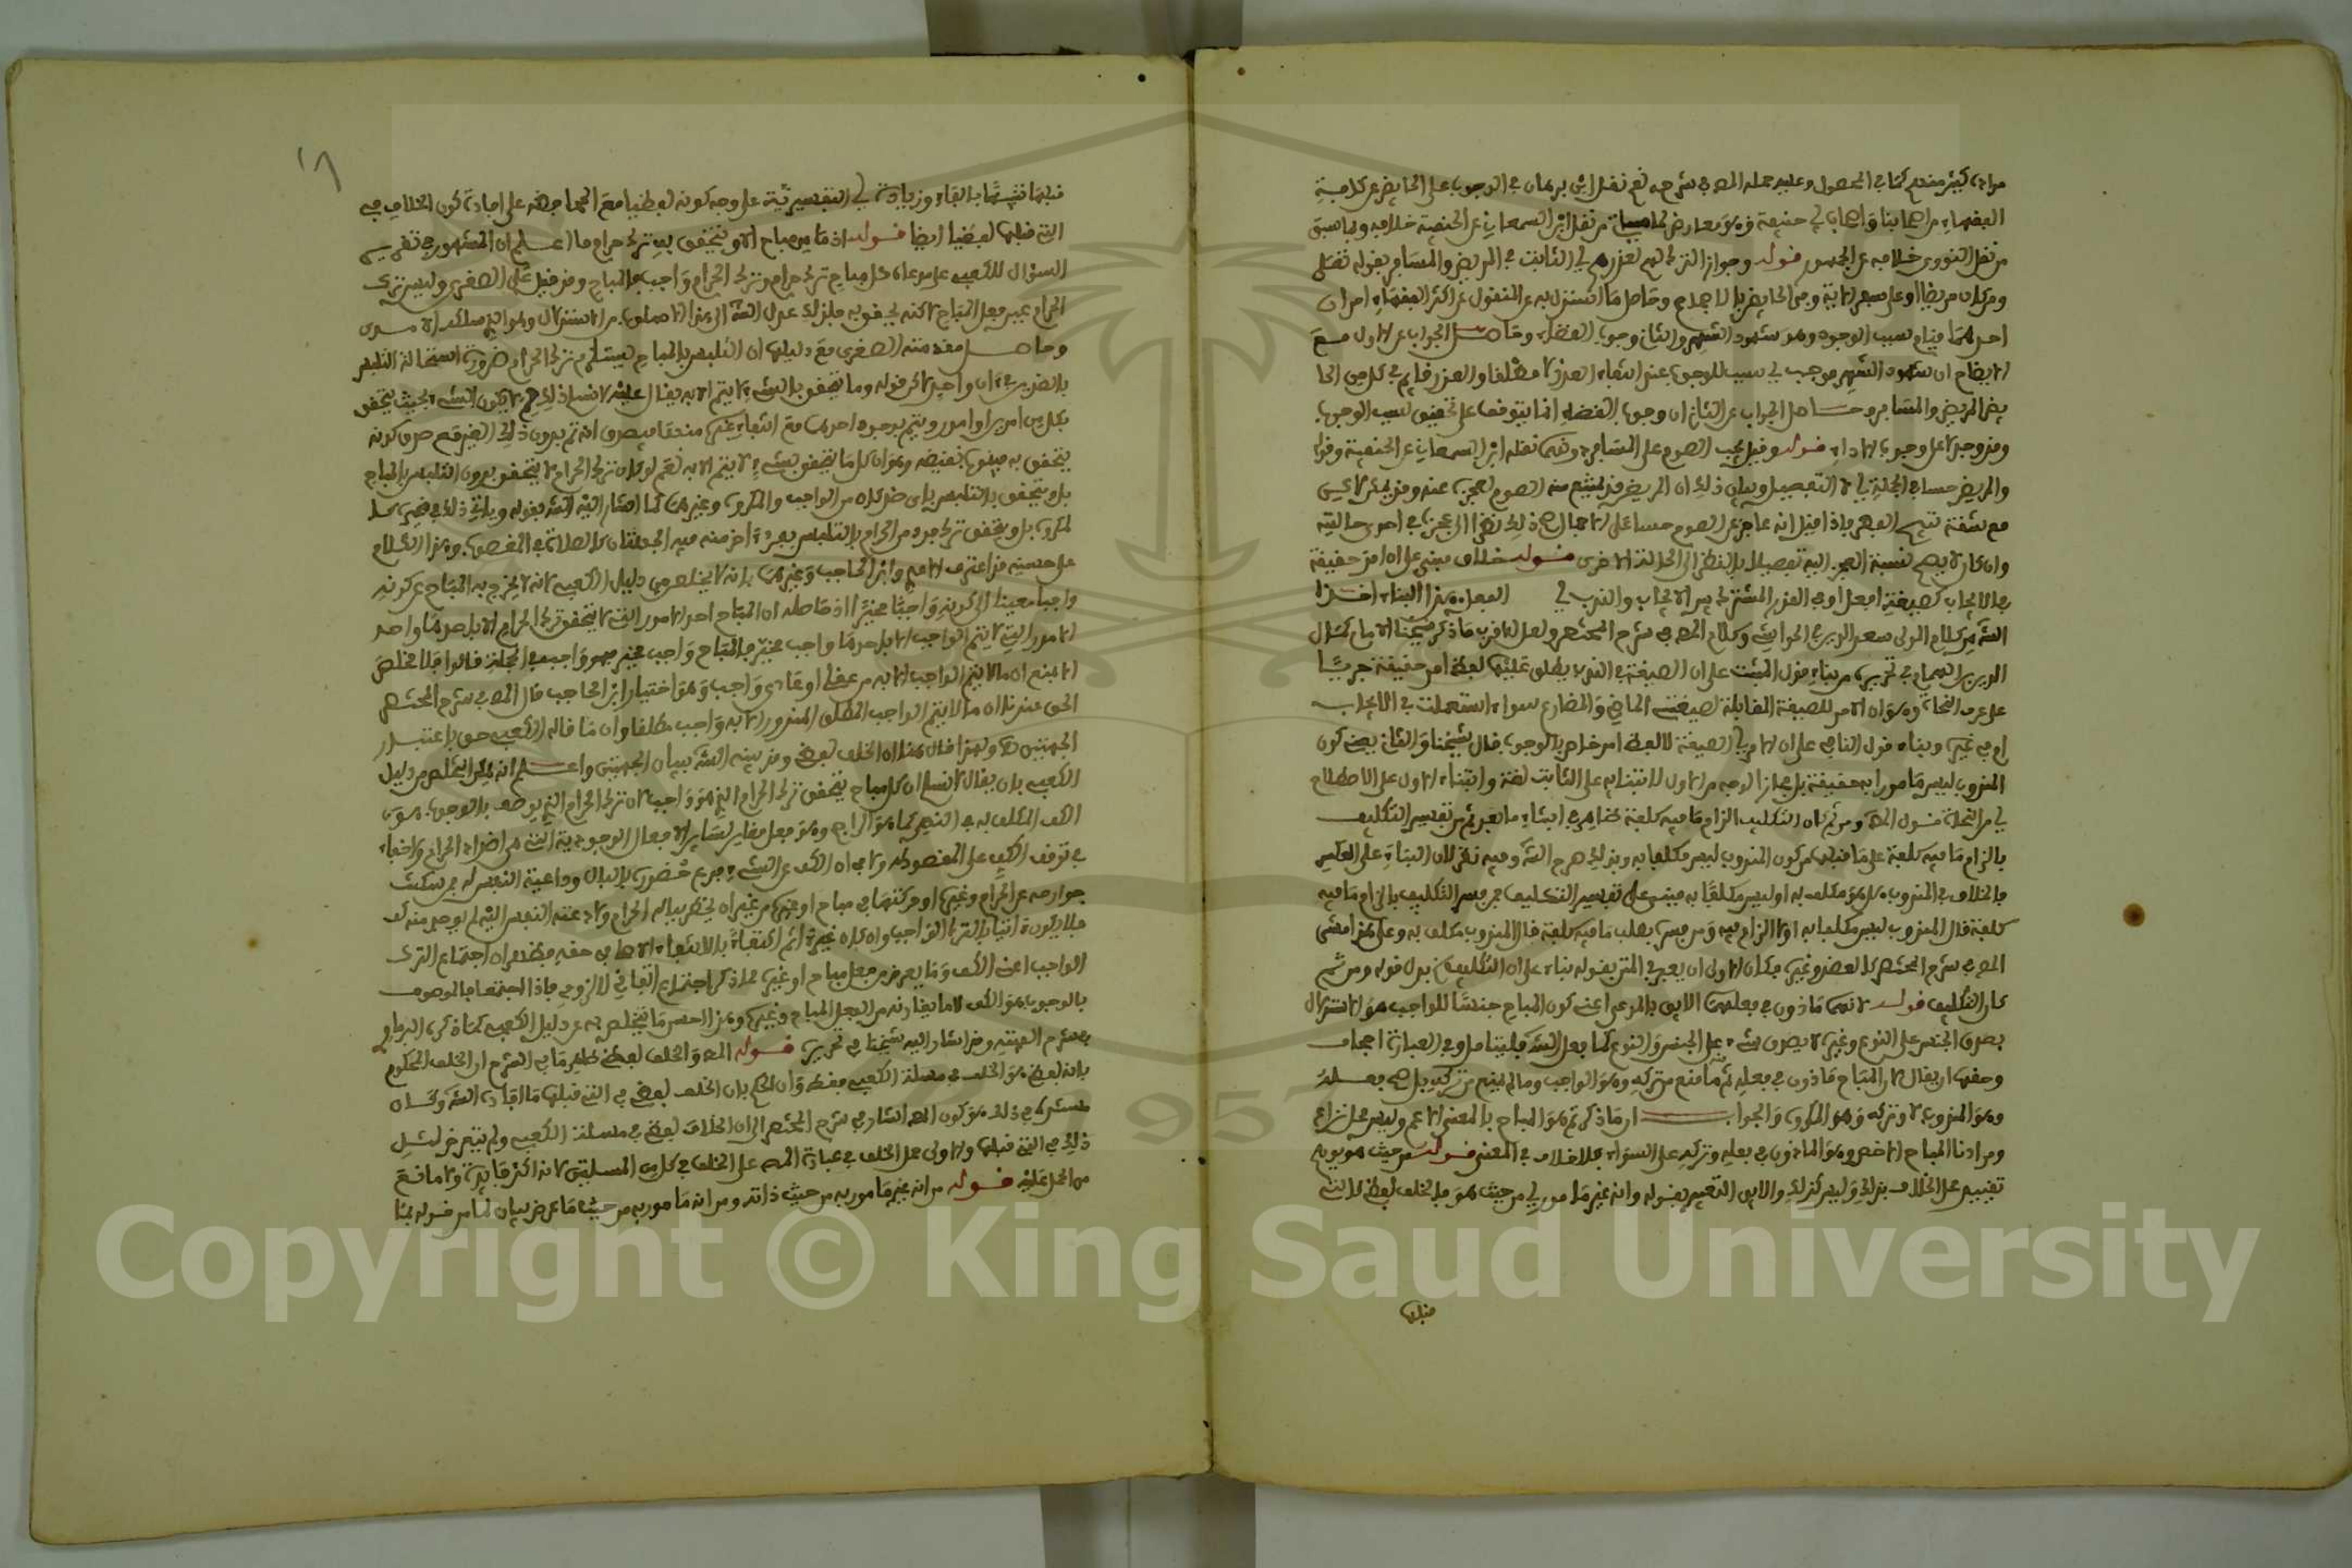 مراده كثير منهم كما في المحصول وعليه حمله المص في شرحه نعم نقل ابن برهان في الوجوب على الحائض عن كلامية
الفقهاء من اصحابنا واصحاب ابي حنيفة وهو معارض من نقل ابن السمعاني عن الحنفية خلافه وبما سبق
من نقل النووي خلافه عن الجمهور قوله وجواز الترك لهم لعذرهم اي الثابت في المريض والمسافر بقوله تعلى
ومن كان مريضا او على سفر الاية وفي الحائض بالاجماع وحاصل ما استدل به عن المنقول عن اكثر الفقهاء امران
احدهما قيام سبب الوجوب وهو شهود الشهر والثاني وجوب القضاء وحاصل الجواب عن الاول مع
الايضاح ان شهود الشهر موجب اي سبب للوجوب عند انتفاء العذر لا مطلقا والعذر قايم في كل من الحا
يض والمريض والمسافر وحاصل الجواب عن الثاني ان وجوب القضاء انما يتوقف على تحقق سبب الوجوب
وقد وجد لا على وجوب الاداء قوله وقيل يجب الصوم على المسافر دونهما نقله ابن السمعاني عن الحنفية وقوله
والمريض حسا في الجملة اي لا التفصيل وبيان ذلك ان المريض قد يمتنع منه الصوم لعجزه عنه وقد يمكن لاكن
مع مشقة تبيح الفطر فاذا قيل انه عاجز عن الصوم حسا على الاجمال صح ذلك نظرا الى عجزه في احدى حالتيه
وان كان لا يصح نسبة العجز اليه تفصيلا بالنظر الى الحالة الاخرى قوله خلاف مبني على ان امر حقيقة
في الايجاب كصيغة افعل او في القدر المشترك بين الايجاب والندب اي الفعل هذا البناء اخذه
الش من كلام المولى سعد الدين في الحواشي وكلام المص في شرح المختصر ولعل الاقرب ما ذكره شيخنا الامام كمال
الدين بن الهمام في تحريره من بناء قول المثبت على ان الصيغة في الندب يطلق عليها لفظ امر حقيقة جريا
على عرف النحاة وهو ان الامر للصيغة المقابلة لصيغتي الماضي والمضارع سواء استعملت في الايجاب
ام في غيره وبناء قول النافي على ان الامر اي الصيغة لا لفظ امر خاص بالوجوب قال شيخنا والثاني يعني كون
المندوب ليس مامورا به حقيقة بل مجازا اوجه من الاول لابتنائه على الثابت لغة وابتناء الاول على الاصطلاح
اي من النحاة قول المص ومن ثم كان التكليف الزام ما فيه كلفة ظاهره انشاء ما تقدم من تفسير التكليف
بالزام ما فيه كلفة على ما قبله من كون المندوب ليس مكلفا به وبذلك صرح الش وفيه نظر لان البناء على العكس
فالخلاف في المندوب هل هو مكلف به او ليس مكلفا به مبني على تفسير التكليف فمن فسر التكليف بالزام ما فيه
كلفة قال المندوب ليس مكلفا به اذ لا الزام فيه ومن فسره بطلب ما فيه كلفة قال المندوب مكلف به وعلى هذا مشى
المص في شرح المختصر كالعضد وغيره فكان الاولى ان يعبر في المتن بقوله بناء على ان التكليف بدل قوله ومن ثم
كان التكليف قوله لانهما ماذون في فعلهما الايق بالمدعى اعني كون المباح جنسا للواجب هو الاستدلال
بصدق الجنس على النوع وغيره لا بصدق شيء على الجنس والنوع كما فعل الش فليتامل وفي العبارة اجحاف
وحقها ان يقال لان المباح ماذون في فعله ثم ما منع من تركه وهو الواجب وما لم يمنع من تركه بل من فعله
وهو المندوب لا وتركه وهو المكروه والجواب ان ما ذكرتم هو المباح بالمعنى الاعم وليس محل نزاع
ومرادنا المباح الاخص وهو الماذون في فعله وتركه على السواء فلا خلاف في المعنى قوله من حيث هو يوهم
تقييد على الخلاف بذلك وليس كذلك والايق التعبير بقوله وانه غير مامور اي من حيث هو فالخلف لفظي كالتي
قبلها
قبلها نبه بالفاء وزيادة اي التفسيرية على وجه كونه لفظيا مع المحافظة على افادة كون الخلاف في
التي قبلها لفظيا ايضا قوله اذ ما من مباح الا ويتحقق به ترك حرام ما اعلم ان المشهور في تقرير
السؤال للكعبي على مدعاه كل مباح ترك حرام وترك الحرام واجب فالمباح وقد قيل على الصغرى وليس ترك
الحرام عين فعل المباح لاكنه يحقق به فلذلك عدل الش الى هذا
وحاصل مقدمته الصغرى مع دليلها ان التلبس بالمباح يستلزم ترك الحرام ضرورة استحالة التلبس
بالضدين في ان واحد لاكن قوله وما يتحقق بالشيء لا يتم الا به يقال عليه لا نسلم ذلك لم لا يكون الشيء بحيث يتحقق
بكل من امرين او امور ويتم بوجود احدها مع انتفاء غيره منها فيصدق انه تم بدون ذلك الغير مع صدق كونه
يتحقق به فيثبت نقيضه وهو ان كل ما يتحقق بشيء لا يتم الا به نعم لو كان ترك الحرام لا يتحقق بدون التلبس بالمباح
بل ويتحقق بالتلبس باي ضد كان من الواجب والمكروه وغيرهما كما اشار اليه الش بقوله وياتي ذلك في غيره كا
لمكروه بل ويتحقق ترك فرد من الحرام بالتلبس بفرد اخر منه فيه الجهتان كالصلاة في المغصوب وهذا الكلام
على حسنه قد اعترف الامدي وابن الحاجب وغيرهما بانه لا مخلص من دليل الكعبي لانه لا يخرج به المباح عن كونه
واجبا معينا الى كونه واجبا مخيرا اذ حاصله ان المباح احد الامور التي لا يتحقق ترك الحرام الا باحدها واحد
الامور التي لا يتم الواجب الا باحدها واجب مخير فالمباح واجب مخير فهو واجب في الجملة قالوا فلا مخلص
الا بمنع ان ما لا يتم الواجب الا به من عقلي او عادي واجب وهو اختيار ابن الحاجب قال المص في شرح المختصر
الحق عندنا ان ما لا يتم الواجب المطلق المقدور الا به واجب مطلقا وان ما قاله الكعبي حق باعتبار
الجهتين ولهذا قال هنا ان الخلف لفظي وقد بينه الش ببيان الجهتين واعلم انه يمكن التخلص من دليل
الكعبي بان يقال لا نسلم ان كل مباح يتحقق ترك الحرام الذي هو واجب لان ترك الحرام الذي يوصف بالوجوب هو
الكف المكلف به في النهي كما هو الراجح وهو فعل مغاير لساير الافعال الوجودية التي هي اضداد الحرام ولا خفاء
في توقف الكف على القصود له ولا في ان الكف عن الشيء فرع خضوره بالبال وداعية النفس له فمن سكنت
جوارحه عن الحرام وغيره او حركتها في مباح او غيره من غير ان يخطر بباله الحرام ولا دعته النفس اليه لم يوجد منه كف
فلا يكون اتيا بالترك الواجب وان كان غير اثم اكتفاء بالانتفاء الاصلي في حقه فظهر ان اجتماع الترك
الواجب اعني الكف وما يعرض من فعل مباح او غيره مما ذكر اجتماع اتفاقي لا لزومي فاذا اجتمعا فالموصوف
بالوجوب هو الكف لا ما يقارنه من الفعل المباح وغيره وهذا احسن ما يتخلص به عن دليل الكعبي كما ذكره البرماوي
وقد اشار اليه شيخنا في تحريره قوله المص والخلف لفظي ظاهر ما في الشرح ان الخلف المحكوم
بانه لفظي هو الخلف في مسئلة الكعبي فقط وان الحكم بان الخلف لفظي في التي قبلها مما افاده الش وكان
مستنده في ذلك هو كون المص اشار في شرح المختصر الى ان الخلاف لفظي في مسئلة الكعبي ولم يتعرض لمثل
ذلك في التي قبلها والاولى حمل الخلف في عبارة المص على الخلف في كل من المسئلتين لانه اكثر فائدة ولا مانع
من الحمل عليه قوله من انه غير مامور به من حيث ذاته ومن انه مامور به من حيث ما عرض بيان لما من قوله بما
Copyright © King Saud University
1957